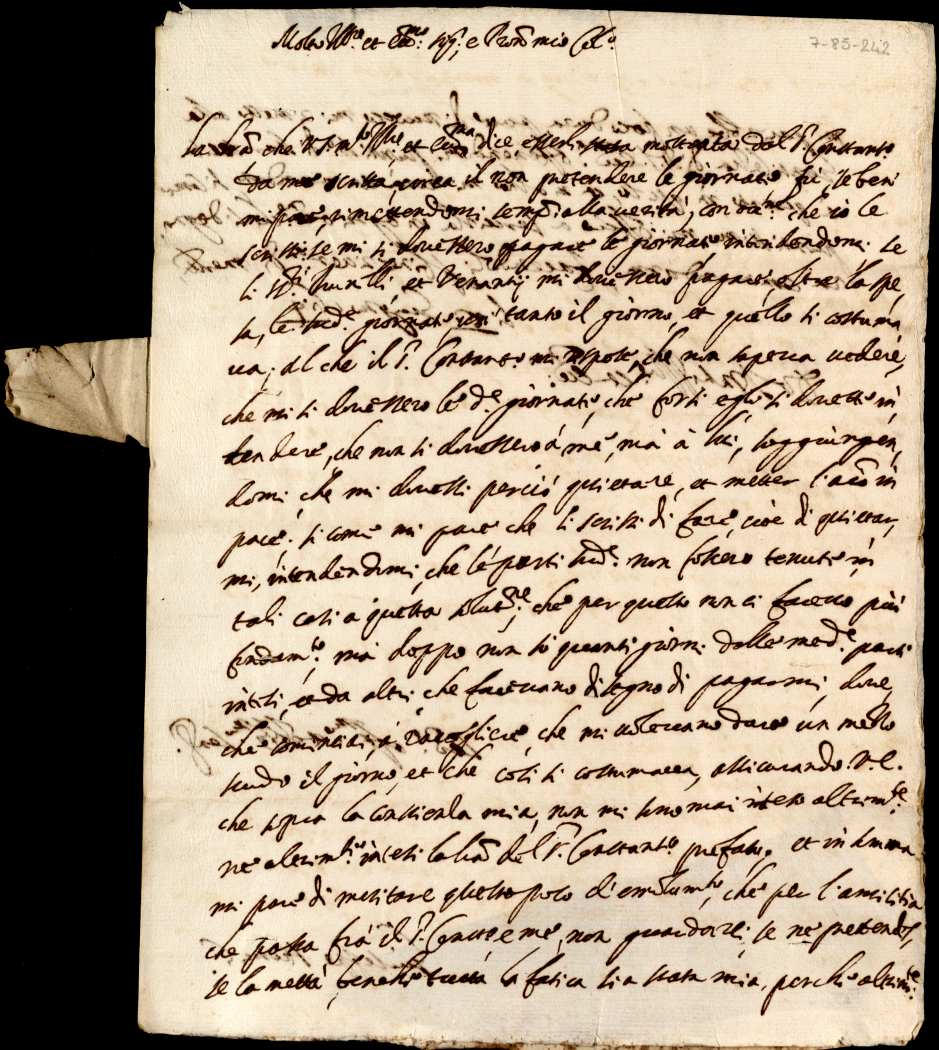 Molto Ill.re et Ecc.mo sig.r e Pron mio Col.mo
7-85-242
La lrã che V.S. m.to Ill.re et Ecc.ma dice esserli stata mostrata dal S.r Constant.o
da me scritta circa il non pretendere le giornate fù, se ben
mi pare, rimettendomi semp. alla verità, con occ.ne che io le
scrissi se mi si dovessero pagare le giornate intendendomi se
li SS.ri et Venantij mi dovessero pagare, oltre la spe,
sa, le sud.e giornate tanto il giorno, et quello si costuma
va; al che il S.r Constant.o mi rispose, che non sapeva vedere,
che mi si dovessero le d.e giornate, che forsi egli si dovette in
tendere, che non si dovessero à me, mà à lui, soggiungen,
domi, che mi dovessi perciò quietare, et metter l'aĩo in
pace, si come mi pare che li scrissi di fare, cioè di quietar,
mi, intendendomi, che le parti sud.e non fossero tenute in
tali casi a questa solut.ne, che per questo non ci facevo più
fondam.to, mà doppo non sò quanti giorni dalle med.e parti
intesi, et da altri, che facevano disegno di pagarmi, dove,
che cominciai à raccoglier, che mi volevano dare un mezzo
scudo il giorno, et che così si costumava, assicurando V.S.
che sopra la conscienza mia, non mi sono mai inteso altrim.te
ne altrim.ti intesi la lrã del S.r Constant.o prefato, et in summa
mi pare di meritare questo poco d'emolum.to, che per l'amicitia
che passa frà il S.r Const.o e me, non guardarei, se ne pretendesse,
se la metà, benche tutta la fatica sia stata mia, perche altrim.te